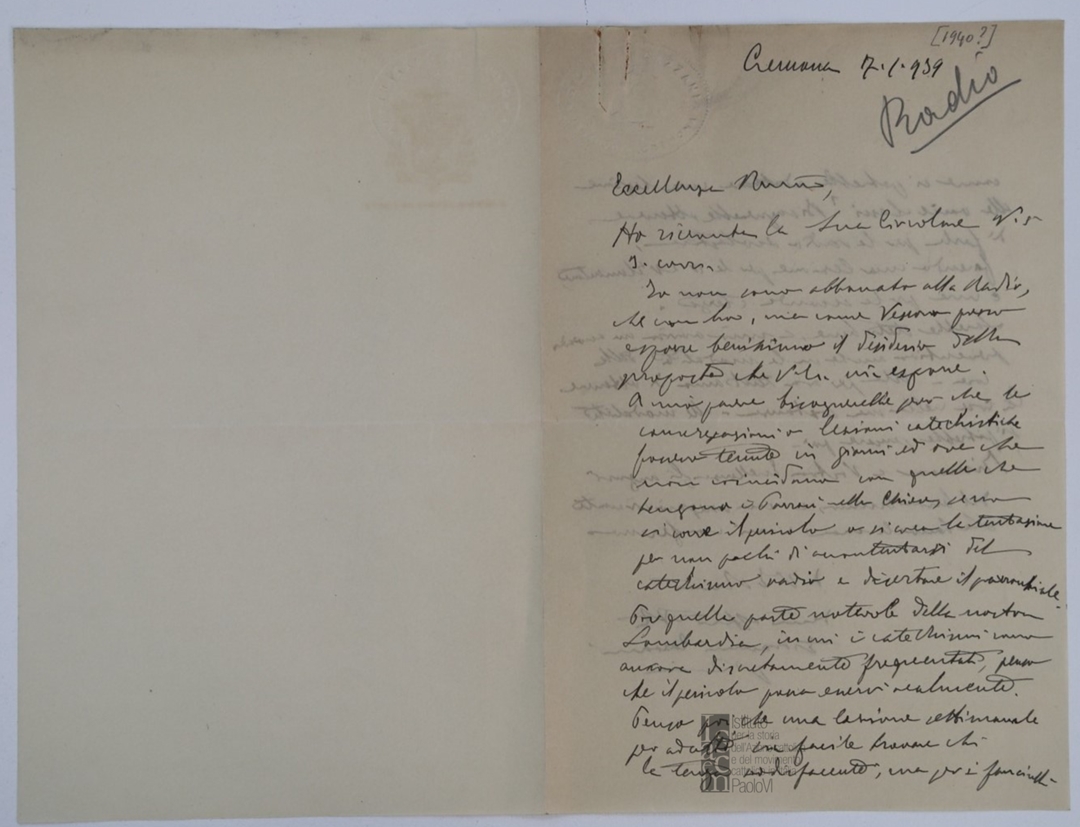 [1940?]
Cremona 7.1.939
Radio
Eccellenza Rev.ma,
Ho ricevuta la Sua Circolare N. 5
3. corr.
Io non sono abbonato alla Radio,
che non ho, ma come Vescovo posso
esporre benissimo il desiderio della
proposta che V. Ecc. mi espone.
A mio parere bisognerebbe però che le
conversazioni o lezioni catechistiche
fossero tenute in giorni ed ore che
non coincidano con quelle che
tengono i Parroci nelle Chiese, se no
si corre il pericolo o si crea la tentazione
per non pochi di accontentarsi del
catechismo radio e disertare il parrocchiale.
Per quella parte notevole della nostra
Lombardia, in cui i catechismi sono
ancora discretamente frequentati, penso
che il pericolo possa esservi realmente.
Penso poi che una lezione settimanale
per adulti sia facile trovare chi
la tenga soddisfacente, ma per i fanciulli
Istituto
per la storia
dell'Azione cattolica
e del movimento
cattolico in Italia
PaoloVI